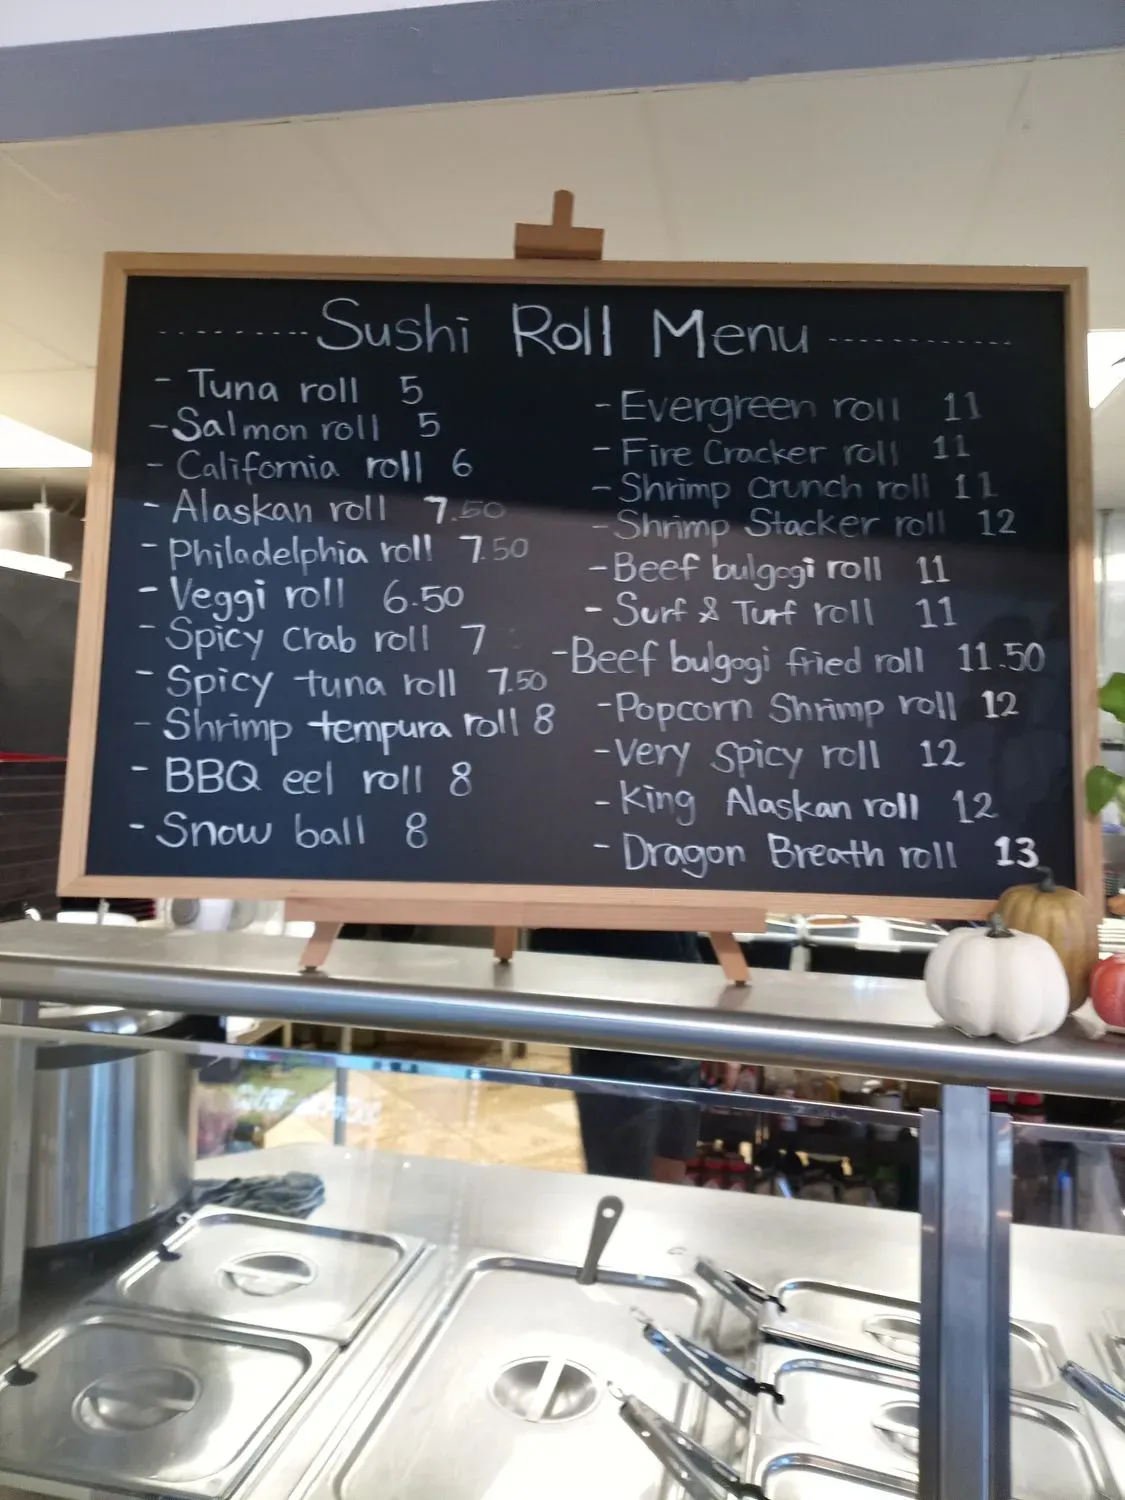 ---------Sushi Roll Menu------------
- Tuna roll 5
- Salmon roll 5
- California roll 6
- Alaskan roll 7.50
- Philadelphia roll 7.50
- Veggi roll 6.50
- Spicy crab roll 7
- Spicy tuna roll 7.50
- Shrimp tempura roll 8
- BBQ eel roll 8
- Snow ball 8
- Evergreen roll 11
- Fire Cracker roll 11
- Shrimp crunch roll 11
- Shrimp Stacker roll 12
- Beef bulgogi roll 11
- Surf & Turf roll 11
- Beef bulgogi fried roll 11.50
- Popcorn Shrimp roll 12
- Very Spicy roll 12
- King Alaskan roll 12
- Dragon Breath roll 13